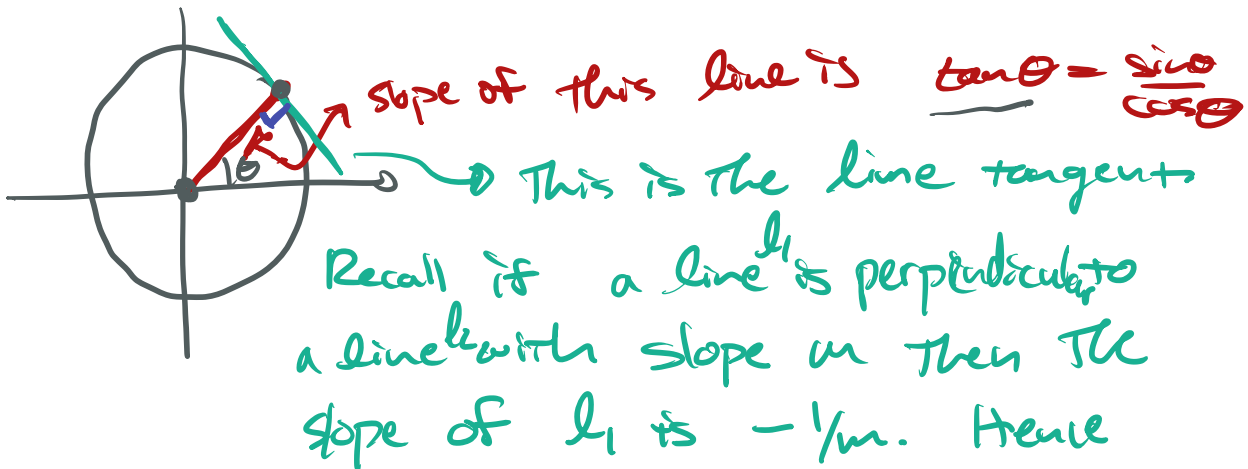 slope of this line is tanθ = sinθ/cosθ
θ
This is the line tangent
Recall if a line l₁ is perpendicular to
a line l₂ with slope m then the
slope of l₁ is -1/m. Hence